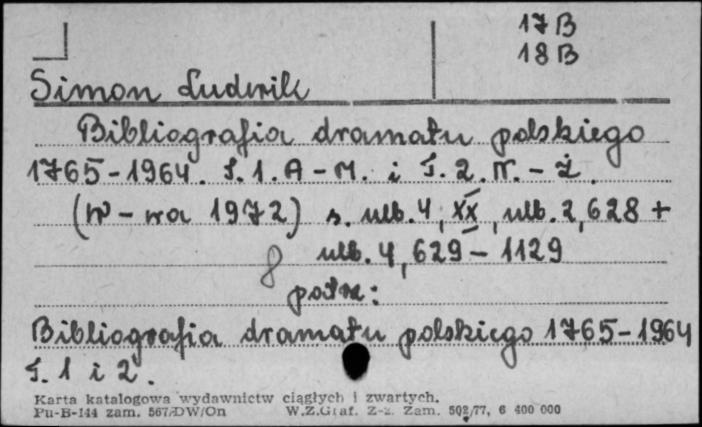 17B
18B
Simon Ludwik
Bibliografia dramatu polskiego
1765-1964. T. 1. A - M. i T. 2. N. - Ż.
(W-wa 1972) s. nlb. 4, XX, nlb. 2, 628 +
8 nlb. 4, 629 - 1129
patrz:
Bibliografia dramatu polskiego 1765-1964
T. 1 i 2.
Karta katalogowa wydawnictw ciągłych i zwartych.
Pu-B-144 zam. 567/DW/On W.Z.Graf. Z-z. Zam. 502/77, 6 400 000